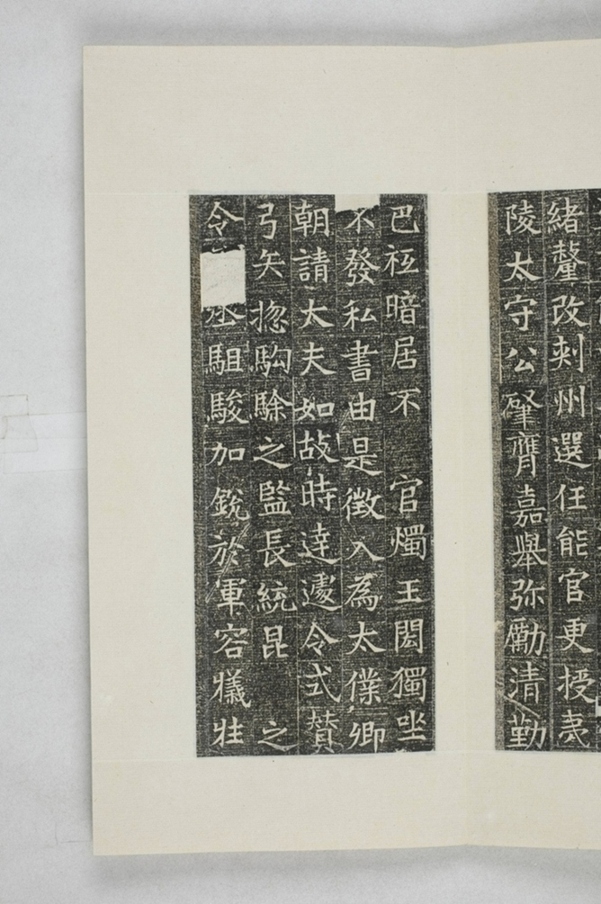 緒釐改刾州選任能官更授夷
陵太守公肇膺嘉舉弥勵清勤
巴祗暗居不 官燭王閎獨坐
不發私書由是徵入為太僕卿
朝請太夫如故時達遽令式贊
弓矢揔駒駼之監長統昆 之
令 丞駔駿加銳於軍容犧牲